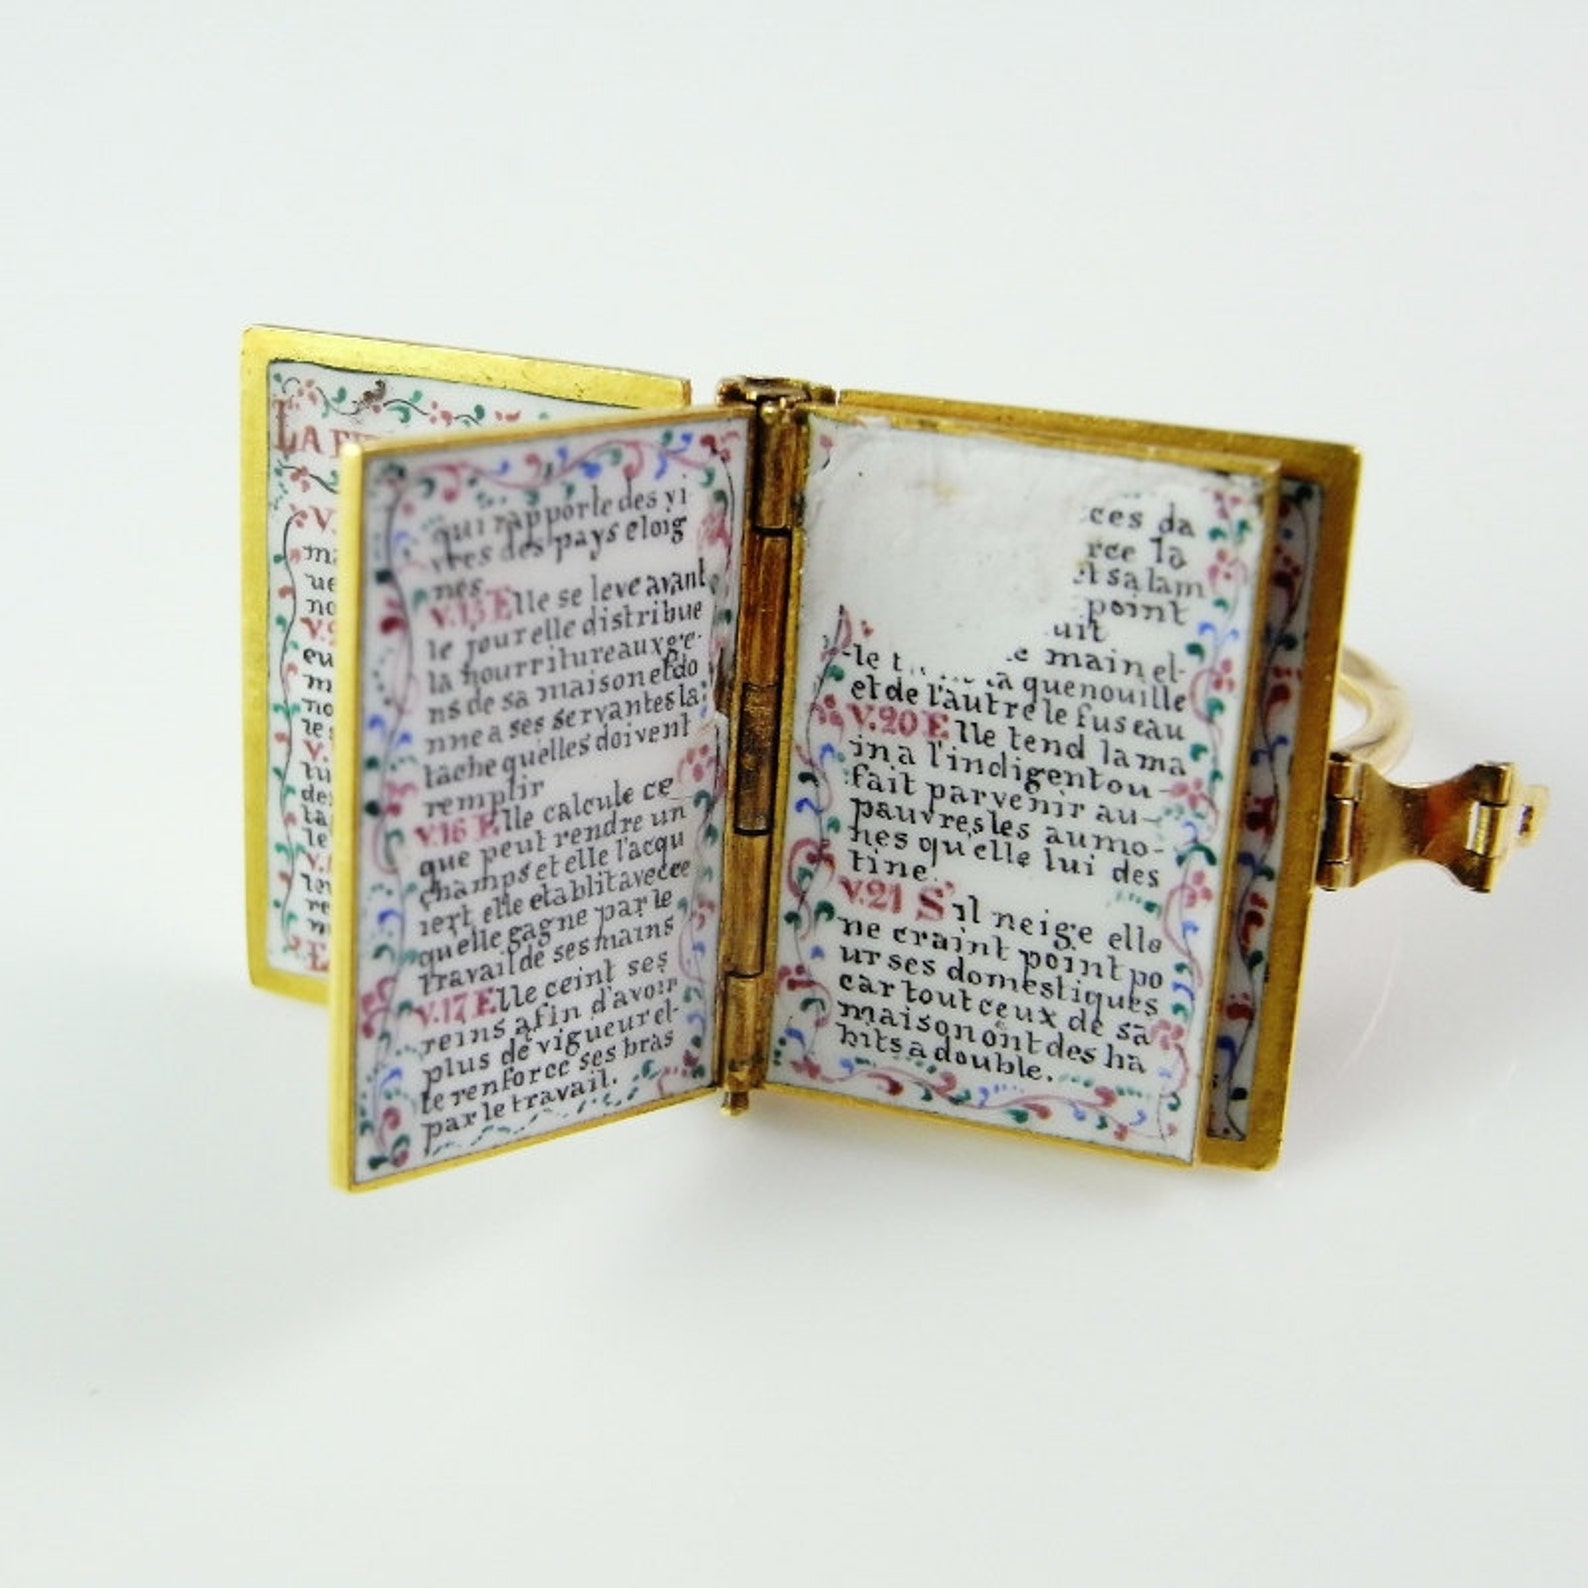 LA
V.
ma
ue
no
V.9
eu
m
no
les
V.
tu
de
ta
le
V.
re
E
qui rapporte des vi
vres des pays eloig
nes
V.15 Elle se leve avant
le jour elle distribue
la nourriture aux ge
ns de sa maison et do
nne a ses servantes la
tâche quelles doivent
remplir
V.16 Elle calcule ce
que peut rendre un
champs et elle l'acqu
iert elle etablit avec ce
quelle gagne par le
travail de ses mains
V.17 Elle ceint ses
reins afin d'avoir
plus de vigueur el-
le renforce ses bras
par le travail.
ces da
rce la
et sa lam
point
uit
main el-
le t a quenouille
et de l'autre le fuseau
V.20 Elle tend la ma
in a l'indigent ou-
fait parvenir au-
pauvres les aumo-
nes qu'elle lui des
tine.
V.21 S'il neige elle
ne craint point po
ur ses domestiques
car tout ceux de sa
maison ont des ha
bits a double.